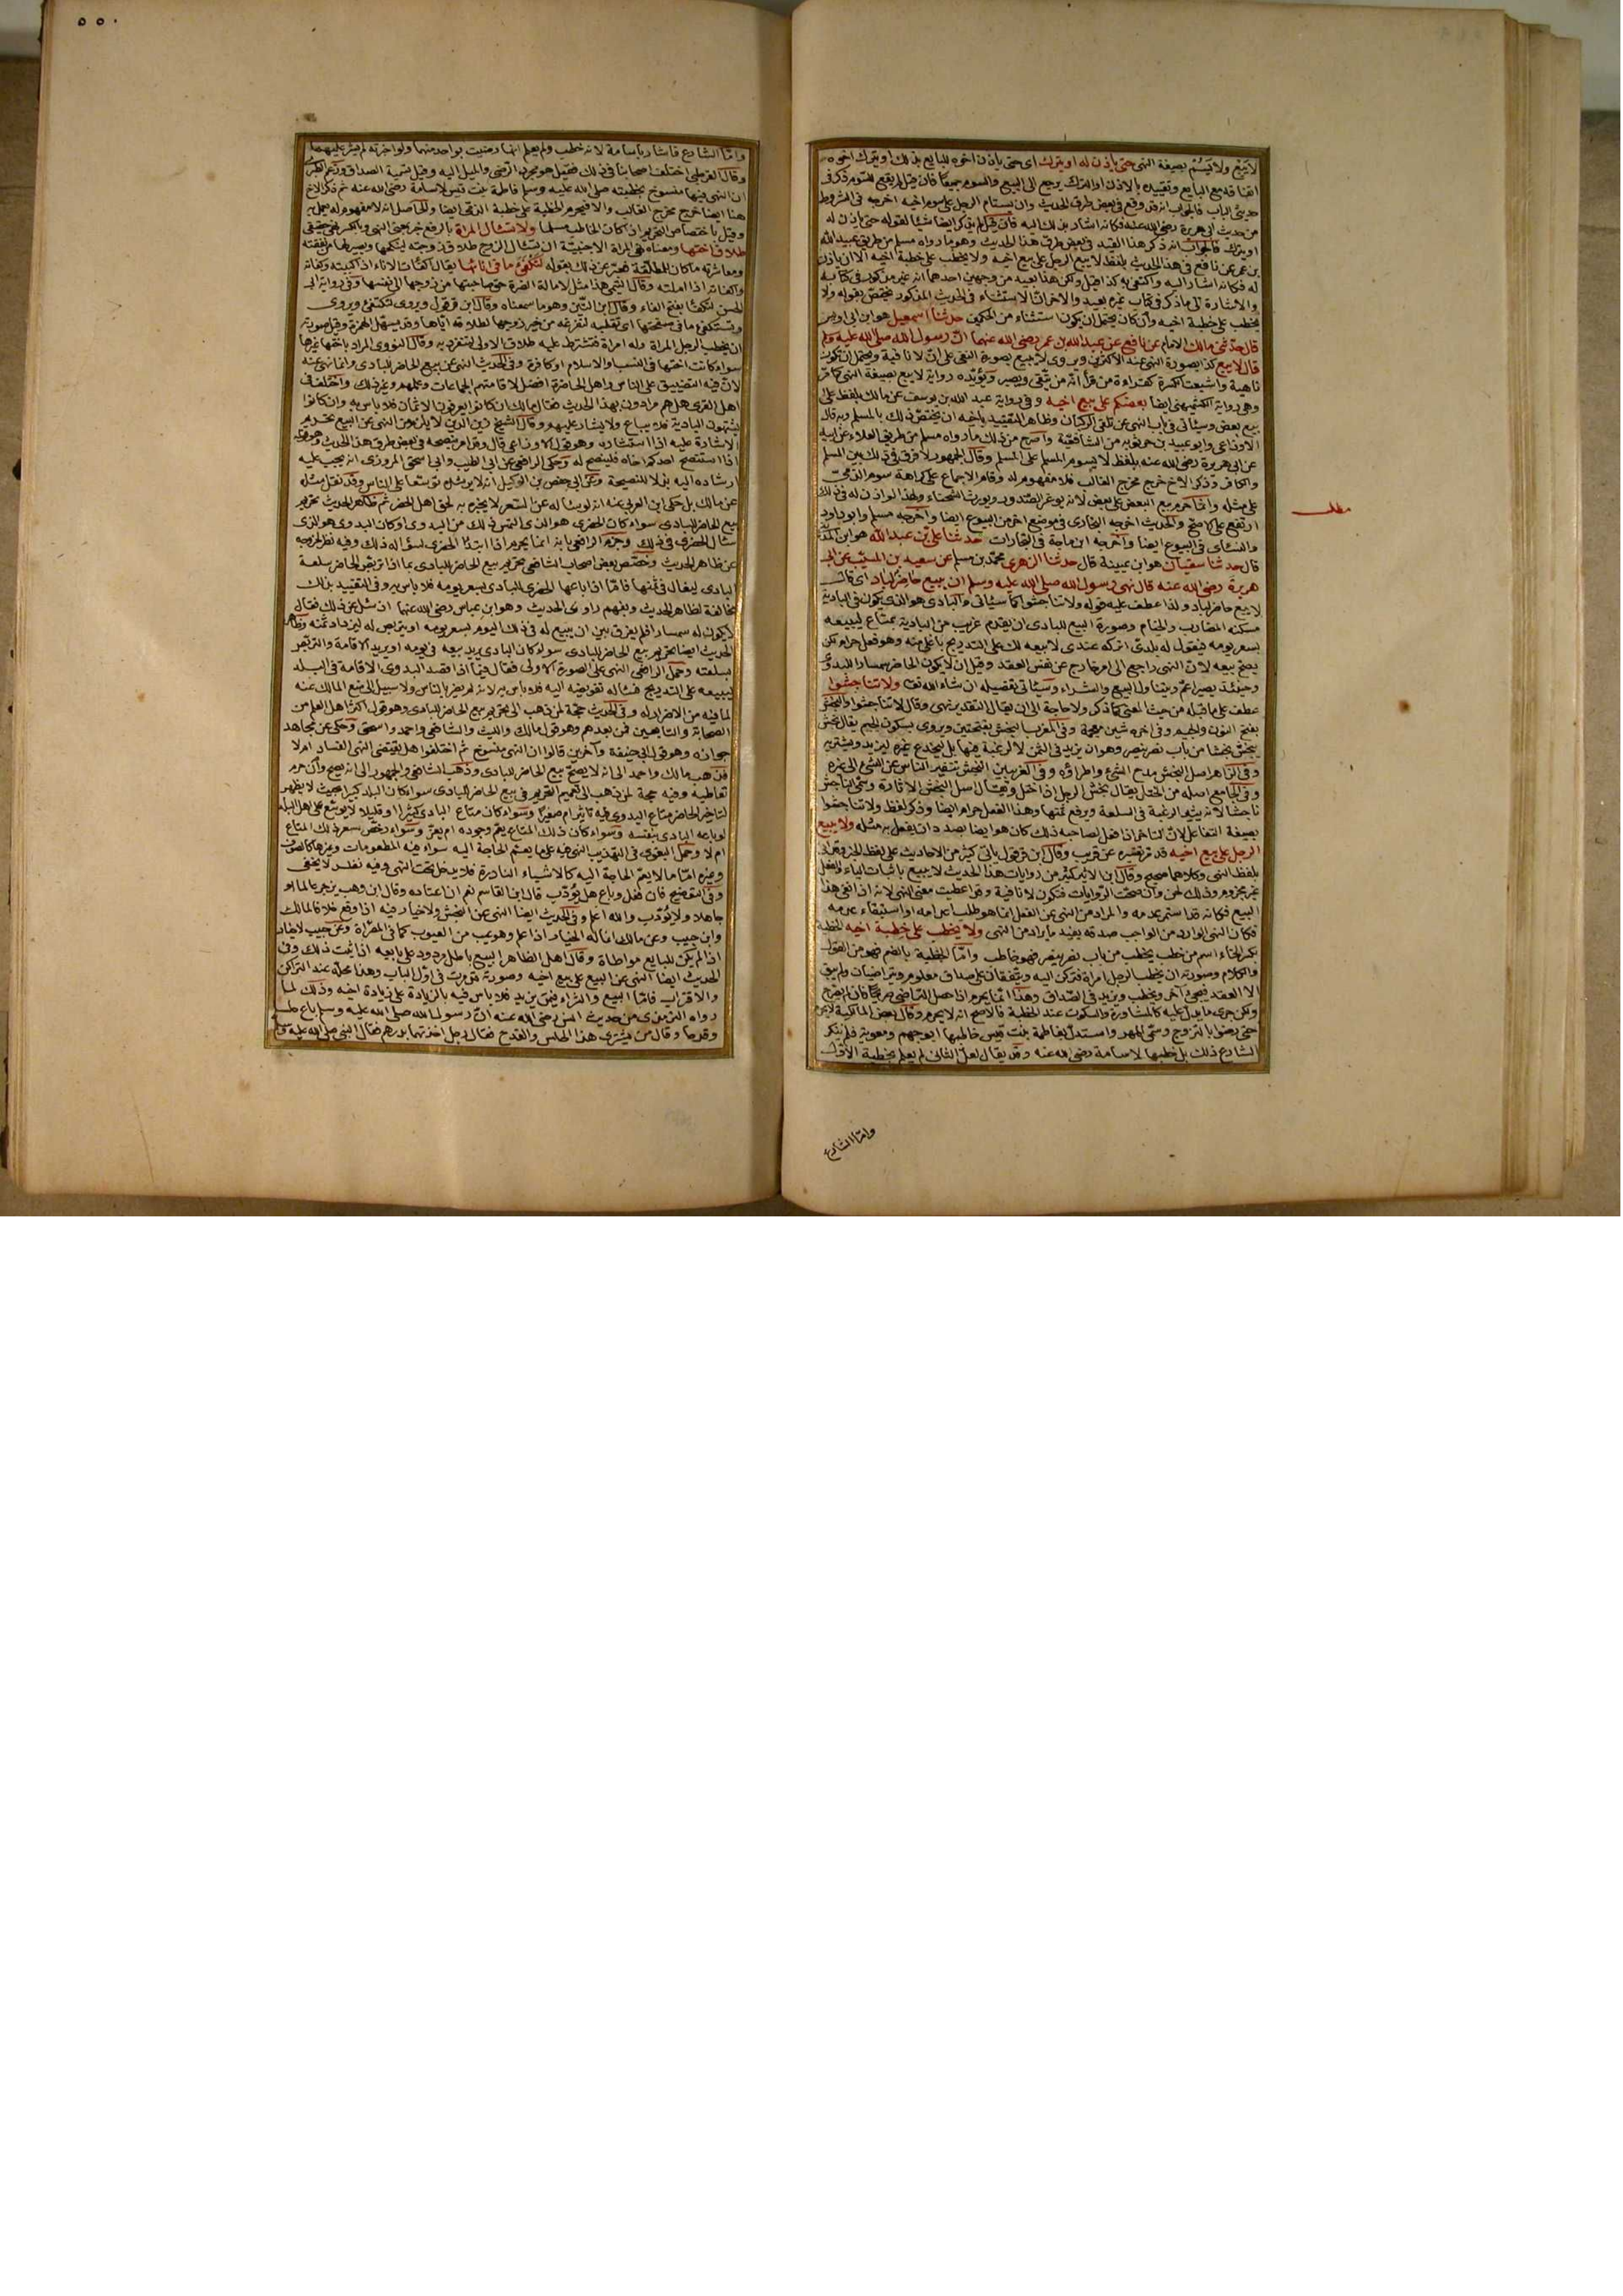 لا يبيع ولا يسم بصيغة النهى حتى ياذن له او يترك اى حتى ياذن اخوه للبايع بذلك او يترك اخوه
اتفاقه مع البايع وتقييده بالاذن او الترك يرجع الى البيع والسوم جميعا فان قيل لم يقع للسوم ذكر فى
حديثى الباب فالجواب انه قد وقع فى بعض طرق الحديث وان يستام الرجل على سوم اخيه اخرجه فى الشروط
من حديث ابى هريرة رضى الله عنه فكانه اشار بذلك اليه فان قيل لم يذكر ايضا شيئا لقوله حتى ياذن له
او يترك فالجواب انه ذكر هذا القيد فى بعض طرق هذا الحديث وهو ما رواه مسلم من طريق عبيد الله
بن عمر عن نافع فى هذا الحديث بلفظ لا يبيع الرجل على بيع اخيه ولا يخطب على خطبة اخيه الا ان ياذن
له فكانه اشار اليه واكتفى به كذا قيل ولكن هذا بعيد من وجهين احدهما انه غير مذكور فى كتابه
والاشارة الى ما ذكر فى كتاب غيره بعيد والاخر ان الاستثناء فى الحديث المذكور مختص بقوله ولا
يخطب على خطبة اخيه وان كان يحتمل ان يكون استثناء من الحكمين حدثنا اسمعيل هو ابن ابى اويس
قال حدثنى مالك الامام عن نافع عن عبد الله بن عمر رضى الله عنهما ان رسول الله صلى الله عليه وسلم
قال لا يبيع كذا بصورة النفى عند الاكثرين ويروى لا يبع بصورة النهى على ان لا نافية ويحتمل ان تكون
ناهية واشبعت الكسرة كقراءة من قرأ انه من يتقى ويصبر ويؤيده رواية لا يبع بصيغة النهى كما مر
وهى رواية الكشميهنى ايضا بعضكم على بيع اخيه وفى رواية عبد الله بن يوسف عن مالك بلفظ على
بيع بعض وسيأتى فى باب النهى عن تلقى الركبان وظاهر التقييد باخيه ان يختص ذلك بالمسلم وبه قال
الاوزاعى وابو عبيد بن حربويه من الشافعية واصرح من ذلك ما رواه مسلم من طريق العلاء عن ابيه
عن ابى هريرة رضى الله عنه بلفظ لا يسوم المسلم على المسلم وقال الجمهور لا فرق فى ذلك بين المسلم
والكافر وذكر الاخ خرج مخرج الغالب فلا مفهوم له وقام الاجماع على كراهة سوم الذمى
على مثله وانما حرم بيع البعض على بعض لانه يوغر الصدور ويورث الشحناء ولهذا لو اذن له فى ذلك
ارتفع على الاصح والحديث اخرجه البخارى فى موضع اخر من البيوع ايضا واخرجه مسلم وابو داود
والنسائى فى البيوع ايضا واخرجه ابن ماجة فى التجارات حدثنا على بن عبد الله هو ابن المدينى
قال حدثنا سفيان هو ابن عيينة قال حدثنا الزهرى محمد بن مسلم عن سعيد بن المسيب عن ابى
هريرة رضى الله عنه قال نهى رسول الله صلى الله عليه وسلم ان يبيع حاضر لباد اى قال
لا يبيع حاضر لباد ولذا عطف عليه قوله ولا تناجشوا كما سيأتى والبادى هو الذى يكون فى البادية
مسكنه المضارب والخيام وصورة البيع للبادى ان يقدم غريب من البادية بمتاع ليبيعه
بسعر يومه فيقول له بلدى اتركه عندى لابيعه لك على التدريج باغلى منه وهو فعل حرام لكن
يصح بيعه لان النهى راجع الى امر خارج عن نفس العقد وقيل ان لا يكون الحاضر سمسارا للبدوى
وحينئذ يصير اعم ويتناول البيع والشراء وسيأتى تفصيله ان شاء الله تعالى ولا تناجشوا
عطف على ما قبله من حيث المعنى كما ذكر ولا حاجة الى ان يقال التقدير نهى وقال لا تناجشوا والنجش
بفتح النون والجيم وفى اخره شين معجمة وفى المغرب النجش بفتحتين ويروى بسكون الجيم يقال نجش
ينجش نجشا من باب نصر ينصر وهو ان يزيد فى الثمن لا لرغبة فيها بل ليخدع غيره ليزيد ويشتريه
وفى الزاهر اصل النجش مدح الشئ واطراؤه وفى الغريبين النجش تنفير الناس عن الشئ الى غيره
وفى الجامع اصله من الختل يقال نجش الرجل اذا ختل ويقال اصل النجش الاثارة وسمى الناجش
ناجشا لانه يثير الرغبة فى السلعة ويرفع ثمنها وهذا الفعل حرام ايضا وذكر لفظ ولا تناجشوا
بصيغة التفاعل لان التاجر اذا فعل لصاحبه ذلك كان هو ايضا بصدد ان يفعل به مثله ولا يبيع
الرجل على بيع اخيه قد مر تفسيره عن قريب وقال ابن قرقول ياتى كثير من الاحاديث على لفظ الخبر وقد ياتى
بلفظ النهى وكلاهما صحيح وقال ابن الاثير كثير من روايات هذا الحديث لا يبيع باثبات الياء والفعل
غير مجزوم وذلك لحن وان صحت الروايات فتكون لا نافية وقد اعطيت معنى النهى لانه اذا نفى هذا
البيع فكانه قد استمر عدمه والمراد من النهى عن الفعل انما هو طلب اعدامه او استبقاء عدمه
فكان النهى الوارد من الواجب صدقه يفيد ما يراد من النهى ولا يخطب على خطبة اخيه الخطبة
بكسر الخاء اسم من خطب يخطب من باب نصر ينصر فهو خاطب واما الخطبة بالضم فهو من القول
والكلام وصورته ان يخطب الرجل امرأة فتركن اليه ويتفقان على صداق معلوم ويتراضيان ولم يبق
الا العقد فيجئ آخر ويخطب ويزيد فى الصداق وهذا انما يحرم اذا حصل التراضى صريحا فان لم يصرح
ولكن جرى ما يدل عليه كالمشاورة والسكوت عند الخطبة فالاصح انه لا يحرم وقال بعض المالكية لا يحرم
حتى يرضوا بالتزوج وسمى المهر واستدل بفاطمة بنت قيس خاطبها ابو جهم ومعوية فلم ينكر
الشارع ذلك بل خطبها لاسامة رضى الله عنه وقد يقال لعل الثانى لم يعلم بخطبة الاول
واما الشارع
مطلب
٥٥٠
واما الشارع فاشار باسامة لا انه خطب ولم يعلم انها رضيت بواحد منهما ولو اخبرته لم يشر عليها
وقال القرطبى اختلف اصحابنا فى ذلك فقيل هو مجرد الرضى والميل اليه وقيل تسمية الصداق وزعم الطبرى
ان النهى فيها منسوخ بخطبته صلى الله عليه وسلم فاطمة بنت قيس لاسامة رضى الله عنه ثم ذكر الاخ
هنا ايضا خرج مخرج الغالب والا فيحرم الخطبة على خطبة الذمى ايضا والحاصل انه لا مفهوم له يعمل به
وقيل باختصاص التحريم اذا كان الخاطب مسلما ولا تسأل المرأة بالرفع خبر بمعنى النهى وبالكسر نهى حقيقى
طلاق اختها ومعناه نهى المرأة الاجنبية ان تسأل الزوج طلاق زوجته لينكحها ويصير لها من نفقته
ومعاشرته ما كان للمطلقة فعبر عن ذلك بقوله لتكفئ ما فى انائها يقال كفأت الاناء اذا كببته وكفأته
واكفأته اذا املته وقال التيمى هذا مثل لامالة الضرة حق صاحبتها من زوجها الى نفسها وفى رواية ابى
الحسن لتكفأ بفتح الفاء وقال ابن التين وهو ما سمعناه وقال ابن قرقول ويروى تكتفئ ويروى
وتستكفئ ما فى صحفتها اى تقلبه لتفرغه من خير زوجها لطلاقه اياها وقد يسهل الهمزة وقيل صورته
ان يخطب الرجل المرأة وله امرأة فتشترط عليه طلاق الاولى لتنفرد به وقال النووى المراد باختها غيرها
سواء كانت اختها فى النسب او الاسلام او كافرة وفى الحديث النهى عن بيع الحاضر للبادى وانما نهى عنه
لان فيه التضييق على الناس واهل الحاضرة افضل لاقامتهم الجماعات وعلمهم وغير ذلك واختلف فى
اهل القرى هل هم مرادون بهذا الحديث فقال مالك ان كانوا يعرفون الاثمان فلا باس به وان كانوا
يشبهون البادية فلا يباع ولا يشار عليهم وقال الشيخ زين الدين لا يلزم من النهى عن البيع تحريم
الاشارة عليه اذا استشاره وهو قول الاوزاعى قال وقد امر بنصحه فى بعض طرق هذا الحديث وهو قوله
اذا استنصح احدكم اخاه فلينصح له وحكى الرافعى عن ابى الطيب وابى اسحق المروزى انه يجب عليه
ارشاده اليه بذلا للنصيحة وعن ابى حفص بن الوكيل انه لا يرشده توسعا على الناس وقد نقل مثله
عن مالك بل حكى ابن العربى عنه انه لو سأله عن السعر لا يخبره به لحق اهل الحضر ثم ظاهر الحديث تحريم
بيع الحاضر للبادى سواء كان الحضرى هو الذى التمس ذلك من البدوى او كان البدوى هو الذى
سأل الحضرى فى ذلك وجزم الرافعى بانه انما يحرم اذا ابتدأ الحضرى بسؤاله ذلك وفيه نظر لخروجه
عن ظاهر الحديث وخصص بعض اصحاب الشافعى تحريم بيع الحاضر للبادى بما اذا تربص الحاضر بسلعة
البادى ليغالى فى ثمنها فاما اذا باعها الحضرى للبادى بسعر يومه فلا باس به وفى التقييد بذلك
مخالفة لظاهر الحديث ولفهم راوى الحديث وهو ابن عباس رضى الله عنهما اذ سئل عن ذلك فقال
لا يكون له سمسارا فلم يفرق بين ان يبيع له فى ذلك اليوم بسعر يومه او يتربص له ليزداد ثمنه وظاهر
الحديث ايضا تحريم بيع الحاضر للبادى سواء كان البادى يريد بيعه فى يومه او يريد الاقامة والتربص
بسلعته وحمل الرافعى النهى على الصورة الاولى فقال فيما اذا قصد البدوى الاقامة فى البلد
ليبيعه على التدريج فسأله تفويضه اليه فلا باس به لانه لم يضر بالناس ولا سبيل الى منع المالك عنه
لما فيه من الاضرار له وفى الحديث حجة لمن ذهب الى تحريم بيع الحاضر للبادى وهو قول اكثر اهل العلم من
الصحابة والتابعين فمن بعدهم وهو قول مالك والليث والشافعى واحمد واسحق وحكى عن مجاهد
جوازه وهو قول ابى حنيفة وآخرين قالوا ان النهى منسوخ ثم اختلفوا هل يقتضى النهى الفساد ام لا
فذهب مالك واحمد الى انه لا يصح بيع الحاضر للبادى وذهب الشافعى والجمهور الى انه يصح وان حرم
تعاطيه وفيه حجة لمن ذهب الى تعميم التحريم فى بيع الحاضر للبادى سواء كان البلد كبيرا بحيث لا يظهر
لتاخير الحاضر متاع البدوى فيه تاثير ام صغيرا وسواء كان متاع البادى كثيرا او قليلا لا يوسع على اهل البلد
لو باعه البادى بنفسه وسواء كان ذلك المتاع يعم وجوده ام يعز وسواء رخص سعر ذلك المتاع
ام لا وحمل البغوى فى التهذيب النهى فيه على ما يعم الحاجة اليه سواء فيه المطعومات وغيرها كالصوف
وغيره اما ما لا يعم الحاجة اليه كالاشياء النادرة فلا يدخل تحت النهى وفيه نظر لا يخفى
وفى التوضيح فان فعل وباع هل يؤدب قال ابن القاسم نعم ان اعتاده وقال ابن وهب يزجر عالما او
جاهلا ولا يؤدب والله اعلم وفى الحديث ايضا النهى عن النجش ولا خيار فيه اذا وقع خلافا لمالك
وابن حبيب وعن مالك انما له الخيار اذا علم وهو عيب من العيوب كما فى المصراة وعن حبيب لا خيار
اذا لم يكن للبايع مواطاة وقال اهل الظاهر البيع باطل مردود على بايعه اذا ثبت ذلك وفى
الحديث ايضا النهى عن البيع على بيع اخيه وصورته قد مرت فى اول الباب وهذا محله عند التراكن
والاقتراب فاما البيع والشراء فيمن يزيد فلا باس فيه بالزيادة على زيادة اخيه وذلك لما
رواه الترمذى من حديث انس رضى الله عنه ان رسول الله صلى الله عليه وسلم باع حلسا
وقدحا وقال من يشترى هذا الحلس والقدح فقال رجل اخذتهما بدرهم فقال النبى صلى الله عليه وسلم